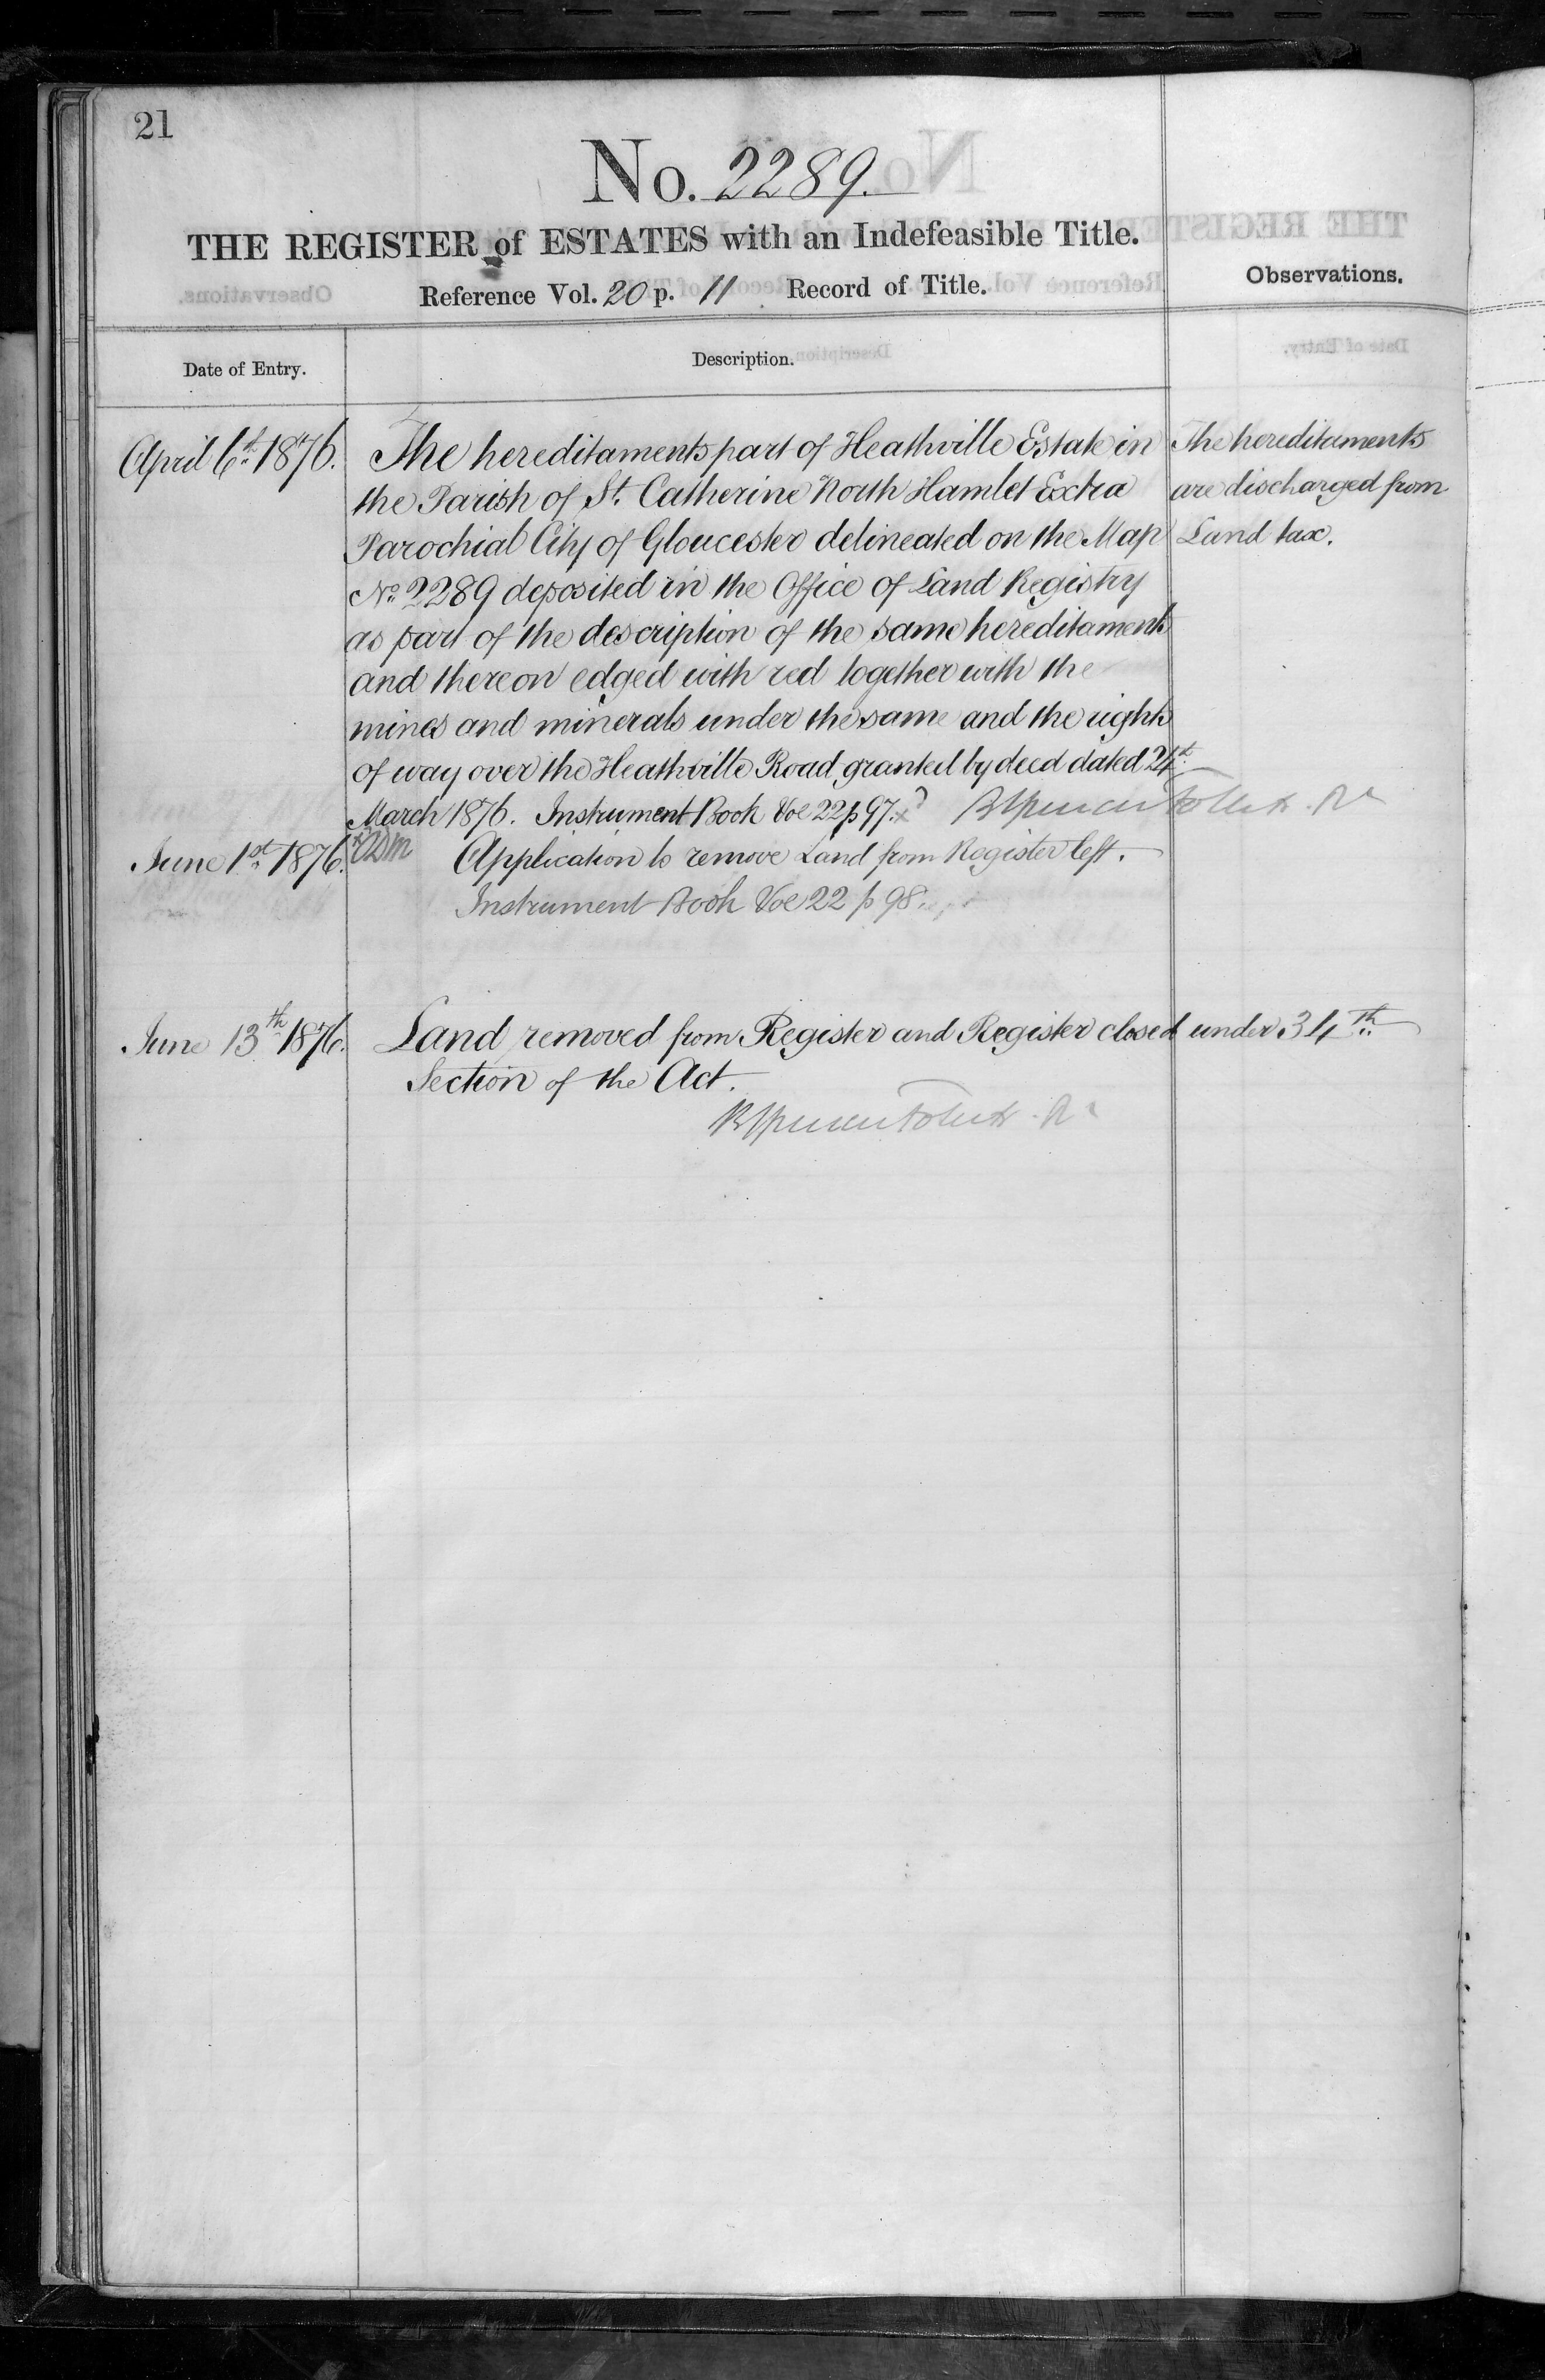 21
No. 2289.
THE REGISTER of ESTATES with an Indefeasible Title.
Reference Vol. 20 p. 11 Record of Title.
Observations.
Date of Entry.
Description.
April 6th 1876.
The hereditaments part of Heathville Estate in
the Parish of St. Catherine North Hamlet Extra
Parochial City of Gloucester delineated on the Map
No 2289 deposited in the Office of Land Registry
as part of the description of the same hereditaments
and thereon edged with red together with the
mines and minerals under the same and the rights
of way over the Heathville Road granted by deed dated 24th
March 1876. Instrument Book Vol 22 p 97.
The hereditaments
are discharged from
Land tax.
June 1st 1876.
Application to remove Land from Register left.
Instrument Book Vol 22 p 98
June 13th 1876.
Land removed from Register and Register closed under 34th
Section of the Act.